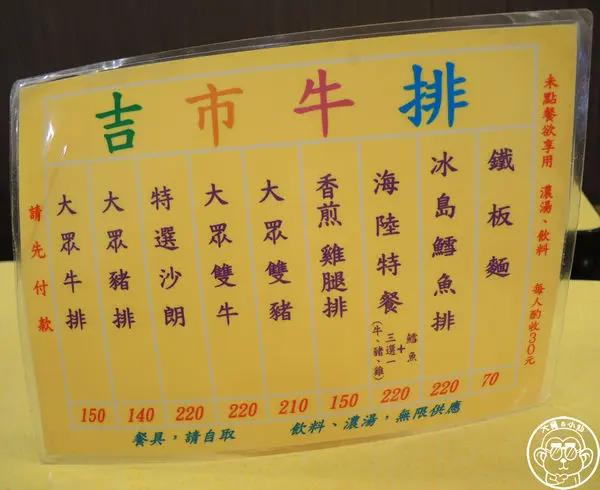 吉市牛排
未點餐欲享用 濃湯、飲料 每人酌收30元
鐵板麵 70
冰島鱈魚排 220
海陸特餐 鱈魚+三選一(牛、豬、雞) 220
香煎雞腿排 150
大眾雙豬 210
大眾雙牛 220
特選沙朗 220
大眾豬排 140
大眾牛排 150
請先付款
餐具,請自取 飲料、濃湯,無限供應